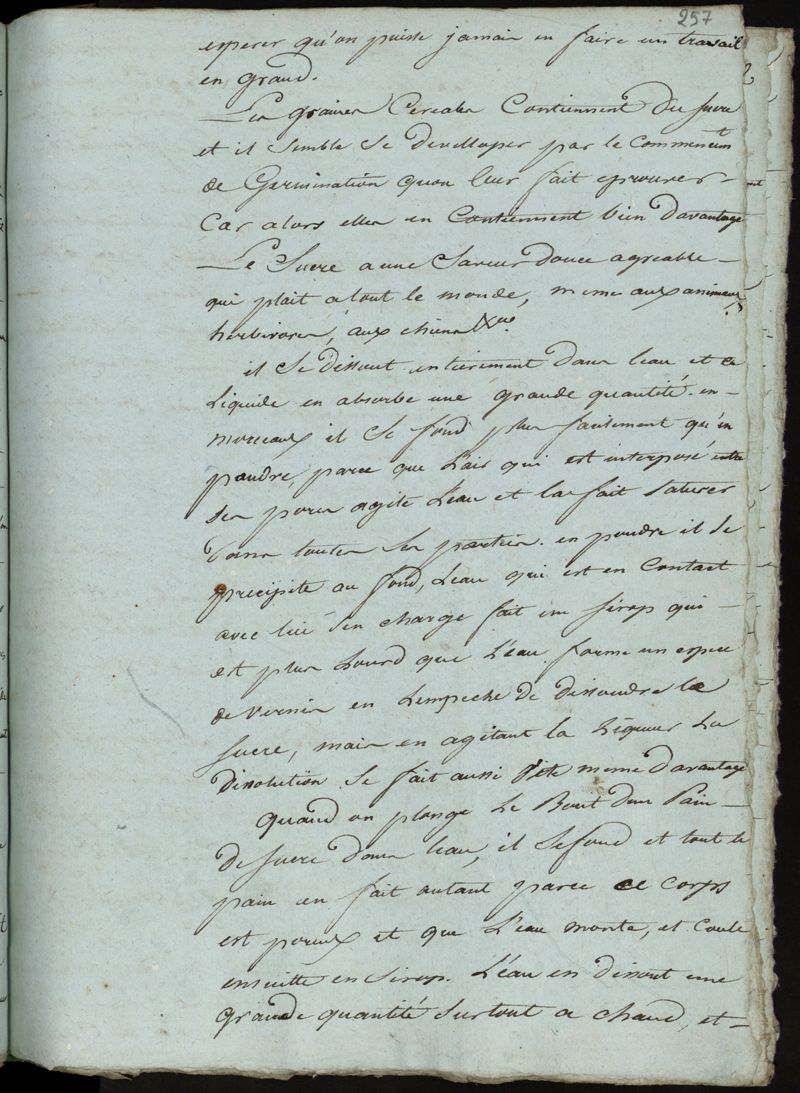 257
esperer qu'on puisse jamais en faire un travail
en grand.
— Les graines Cereales Contiennent du sucre
et il semble se developer par le commencem
de Germination quon leur fait eprouver –
Car alors elles en Contiennent bien davantage
— Le Sucre a une Saveur douce agreable –
qui plait a tout le monde, meme aux animaux
herbivores, aux chiens &ca.
il se dissout entierement dans leau et ce
Liquide en absorbe une grande quantité. en –
morceaux il se fond plus facilement qu'en
poudre, parce que L'air qui est interposé entre
ses pores agite L'eau et la fait saturer
dans toutes ses parties. en poudre il se
precipite au fond, L'eau qui est en Contact
avec lui s'en charge fait un sirop qui –
est plus Lourd que L'eau forme un espece
de vernis en Lempeche de dissoudre le
sucre, mais en agitant la Liqueur La
Dissolution se fait aussi vite meme davantage
quand on plonge Le Bout dun Pain –
de sucre dans leau, il se fond et tout le
pain en fait autant parce ce corps
est poreux et que L'eau monte, et coule
ensuitte en sirop. L'eau en dissout une
grande quantité surtout a chaud, et –